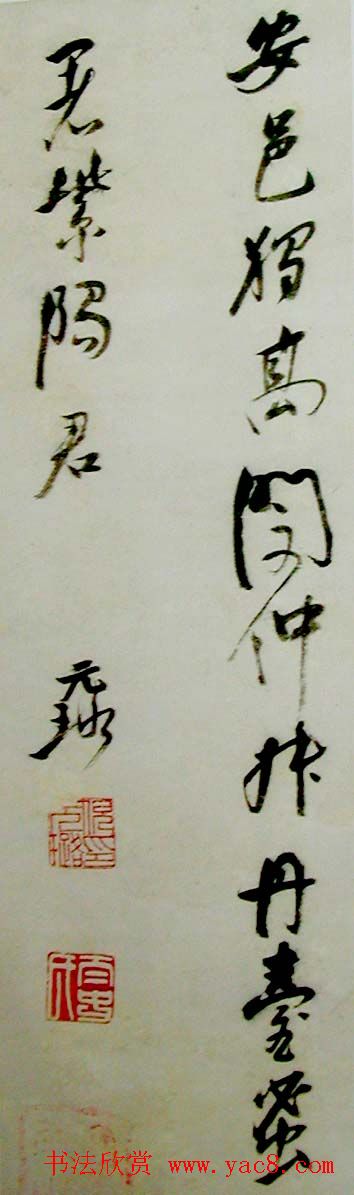 安邑獨高閔仲叔丹臺蚤
署紫陽君 元璐
书法欣赏 www.yac8.com